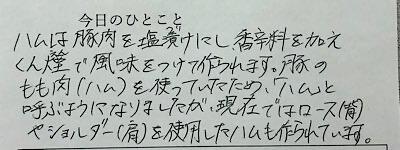 今日のひとこと
ハムは豚肉を塩漬けにし香辛料を加え
くん煙で風味をつけて作られます。豚の
もも肉(ハム)を使っていたため、「ハム」と
呼ぶようになりましたが、現在ではロース(背)
やショルダー(肩)を使用したハムも作られています。